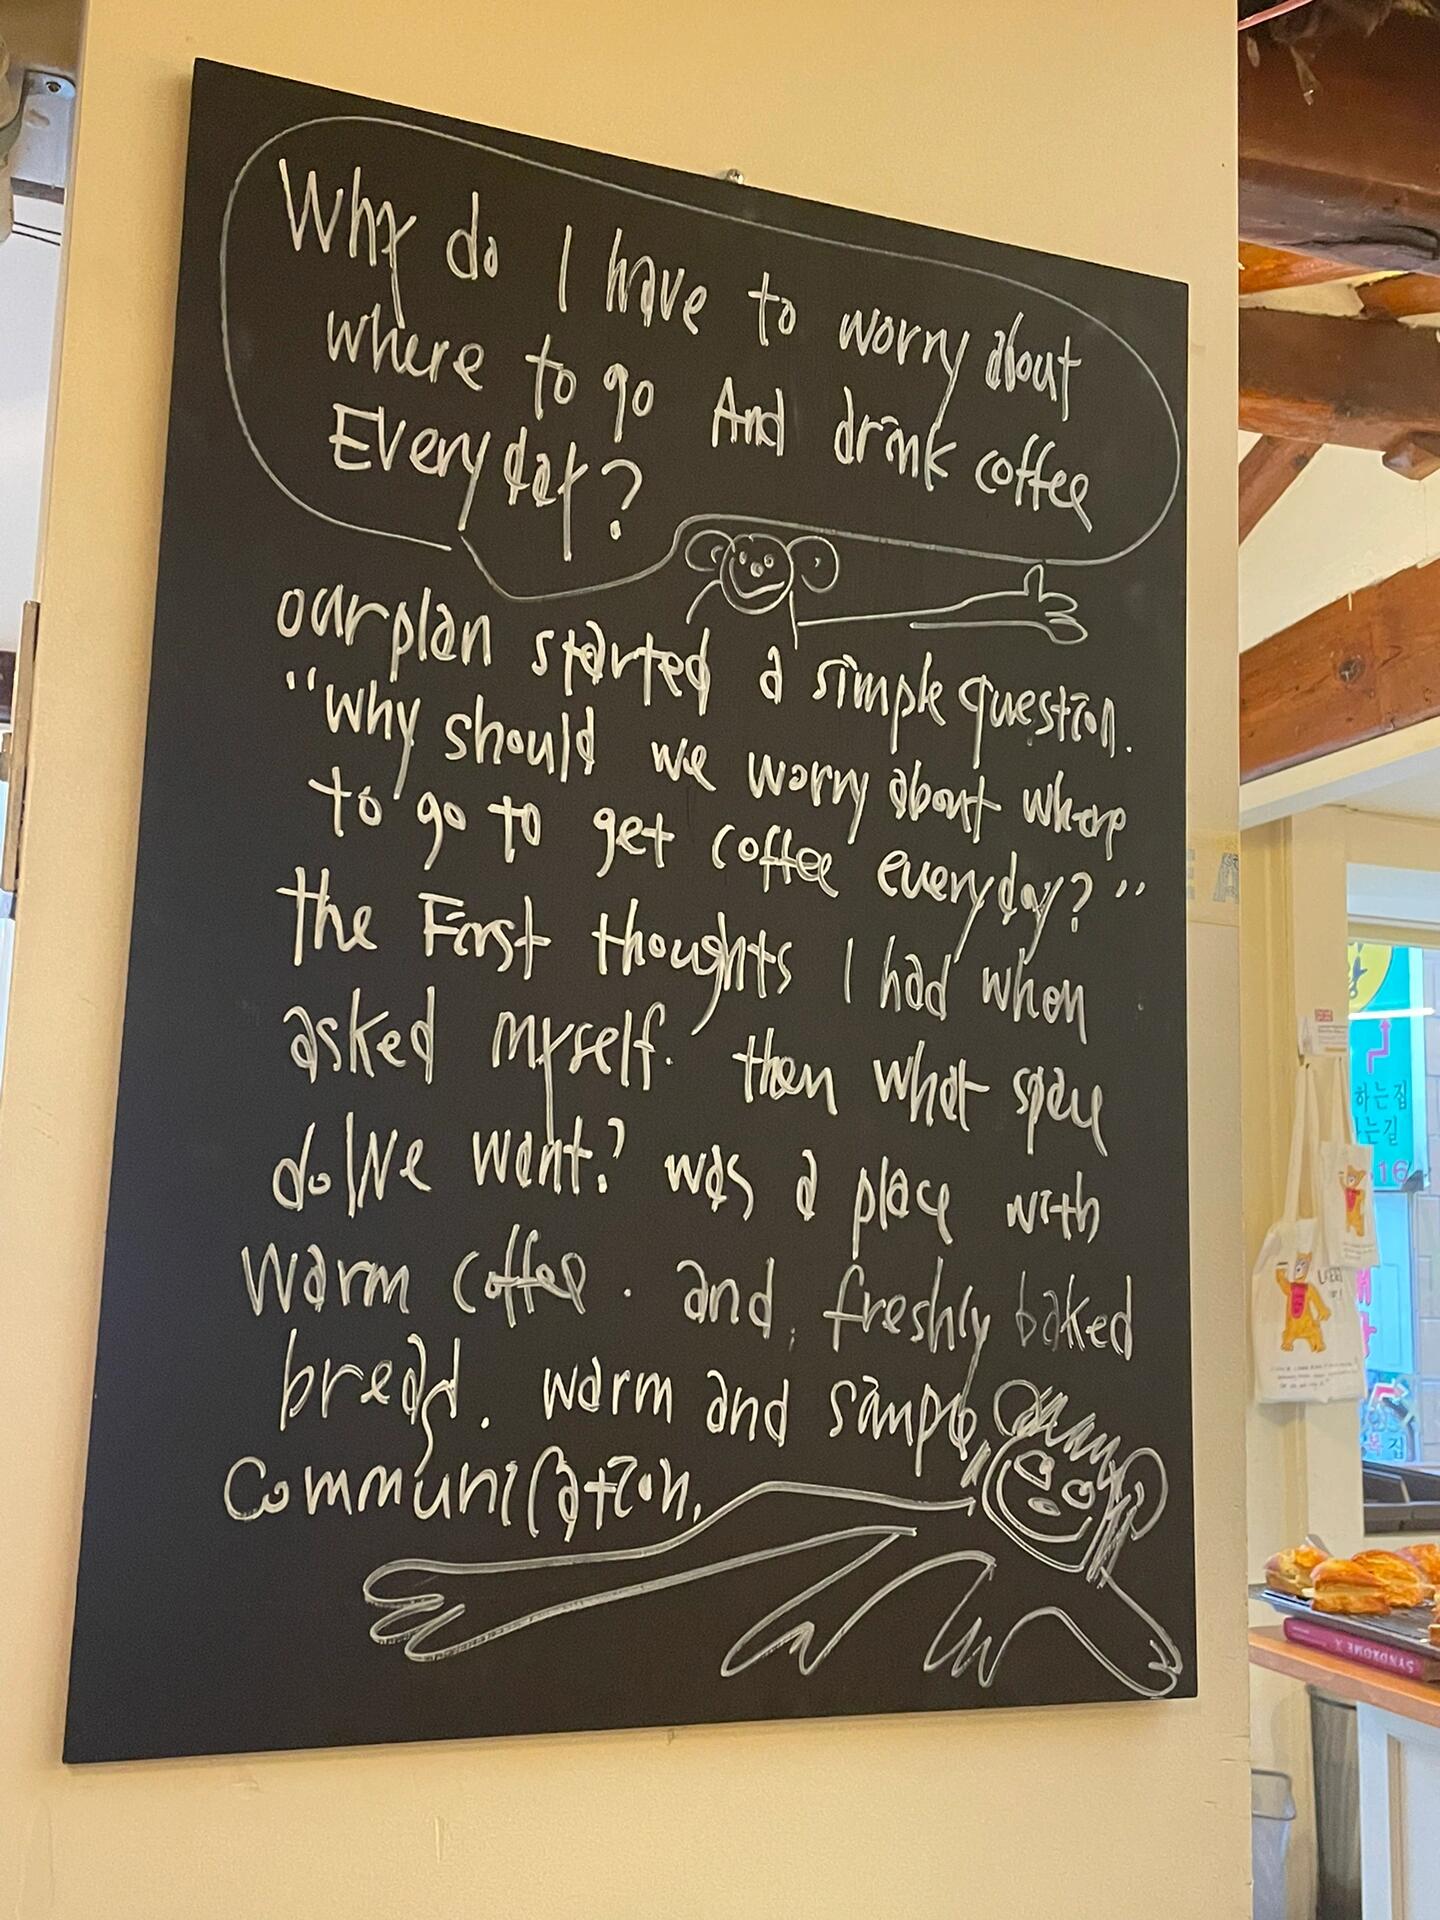 Why do I have to worry about
where to go And drink coffee
Everyday?
our plan started a simple question.
"why should we worry about where
to go to get coffee everyday?"
the First thoughts I had when
asked myself. then what space
do We want? was a place with
warm coffee. and, freshly baked
bread. warm and simple
communication.
EA
하는집
는길
16
SYNDROME X